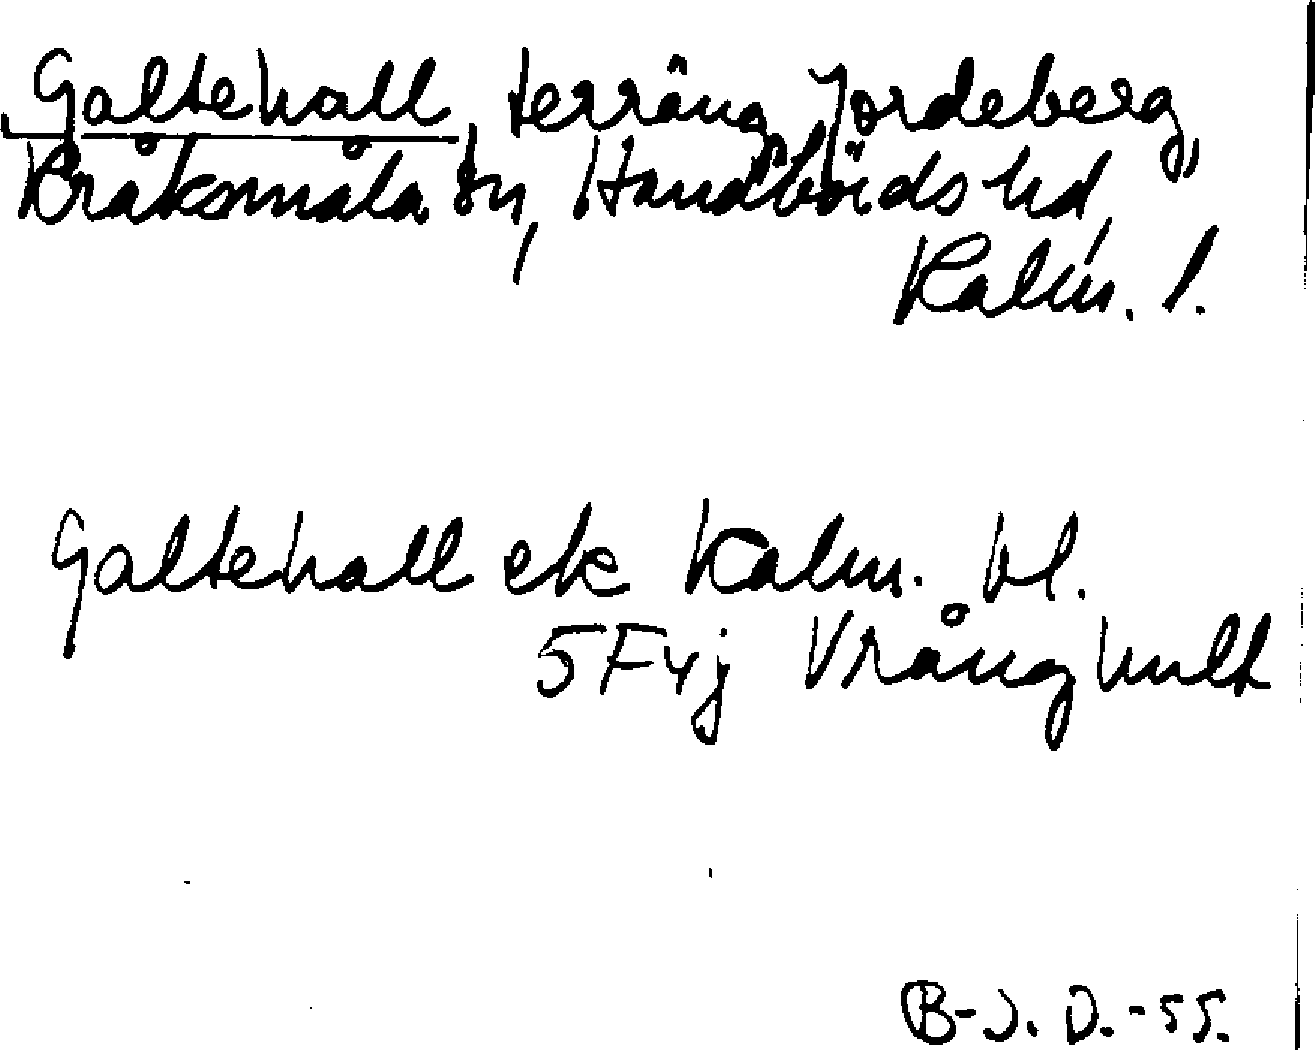 Galtehall, terräng, Jordeberg,
Kråksmåla sn, Handbörds hd,
Kalm. l.
Galtehall ek Kalm. bl.
5F4j Vrånghult
B-J. D.-55.